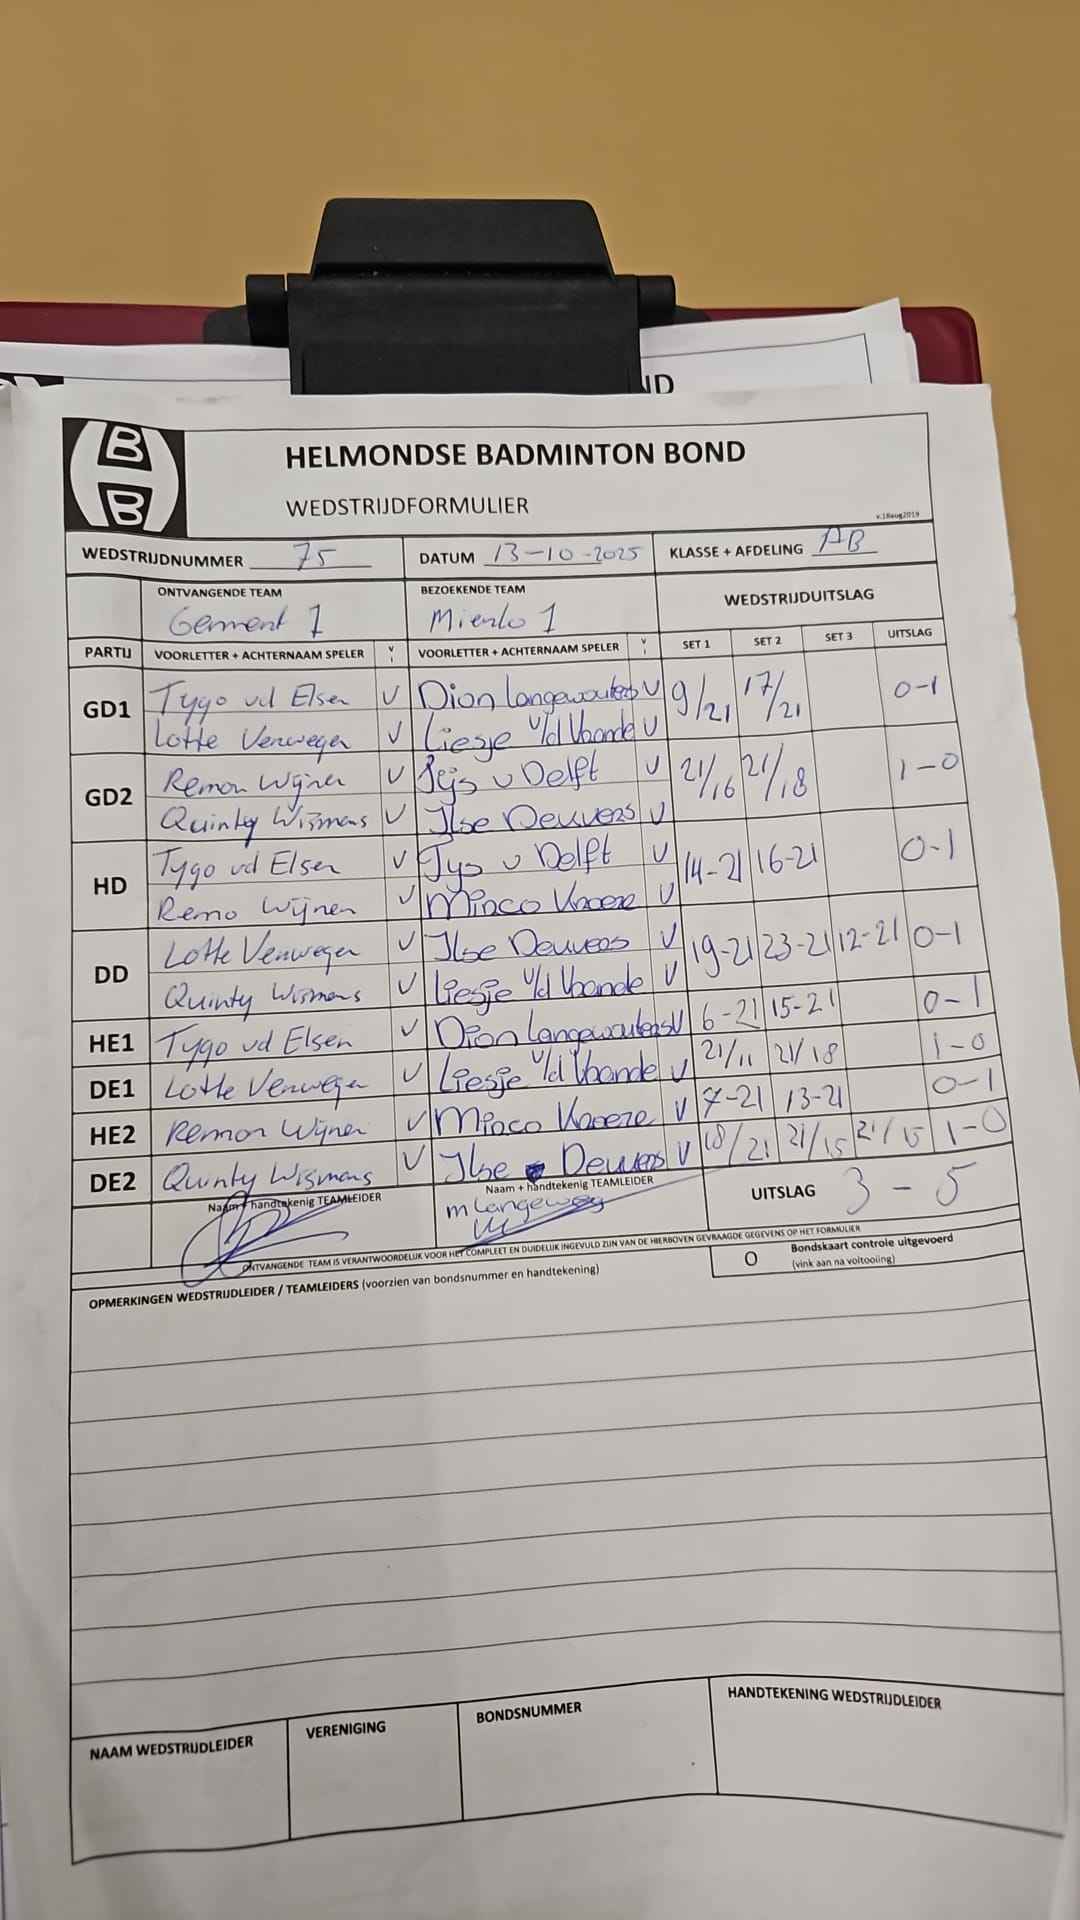 ND
B
B
HELMONDSE BADMINTON BOND
WEDSTRIJDFORMULIER
v.18aug2019
WEDSTRIJDNUMMER 75 DATUM 13-10-2025 KLASSE + AFDELING AB
ONTVANGENDE TEAM BEZOEKENDE TEAM WEDSTRIJDUITSLAG
Gemert 1 Mierlo 1
PARTIJ VOORLETTER + ACHTERNAAM SPELER V VOORLETTER + ACHTERNAAM SPELER V SET 1 SET 2 SET 3 UITSLAG
GD1 Tygo vd Elsen V Dion Langewouters V 9/21 17/21 0-1
Lotte Verwegen V Liesje v/d Voorde V
GD2 Remon Wijnen V Tijs v Delft V 21/16 21/18 1-0
Quinty Wismans V Ilse Deuvers V
HD Tygo vd Elsen V Tys v Delft V 14-21 16-21 0-1
Remo Wijnen V Minco Knoeze V
DD Lotte Verwegen V Ilse Deuvers V 19-21 23-21 12-21 0-1
Quinty Wismans V Liesje v/d Voorde V
HE1 Tygo vd Elsen V Dion Langewouters V 6-21 15-21 0-1
DE1 Lotte Verwegen V Liesje v/d Voorde V 21/11 21/18 1-0
HE2 Remon Wijnen V Minco Knoeze V 7-21 13-21 0-1
DE2 Quinty Wismans V Ilse Deuvers V 18/21 21/15 21/15 1-0
Naam + handtekenig TEAMLEIDER Naam + handtekenig TEAMLEIDER UITSLAG 3 - 5
m Langeweg
ONTVANGENDE TEAM IS VERANTWOORDELIJK VOOR HET COMPLEET EN DUIDELIJK INGEVULD ZIJN VAN DE HIERBOVEN GEVRAAGDE GEGEVENS OP HET FORMULIER
O Bondskaart controle uitgevoerd
(vink aan na voltooiing)
OPMERKINGEN WEDSTRIJDLEIDER / TEAMLEIDERS (voorzien van bondsnummer en handtekening)
NAAM WEDSTRIJDLEIDER VERENIGING BONDSNUMMER HANDTEKENING WEDSTRIJDLEIDER